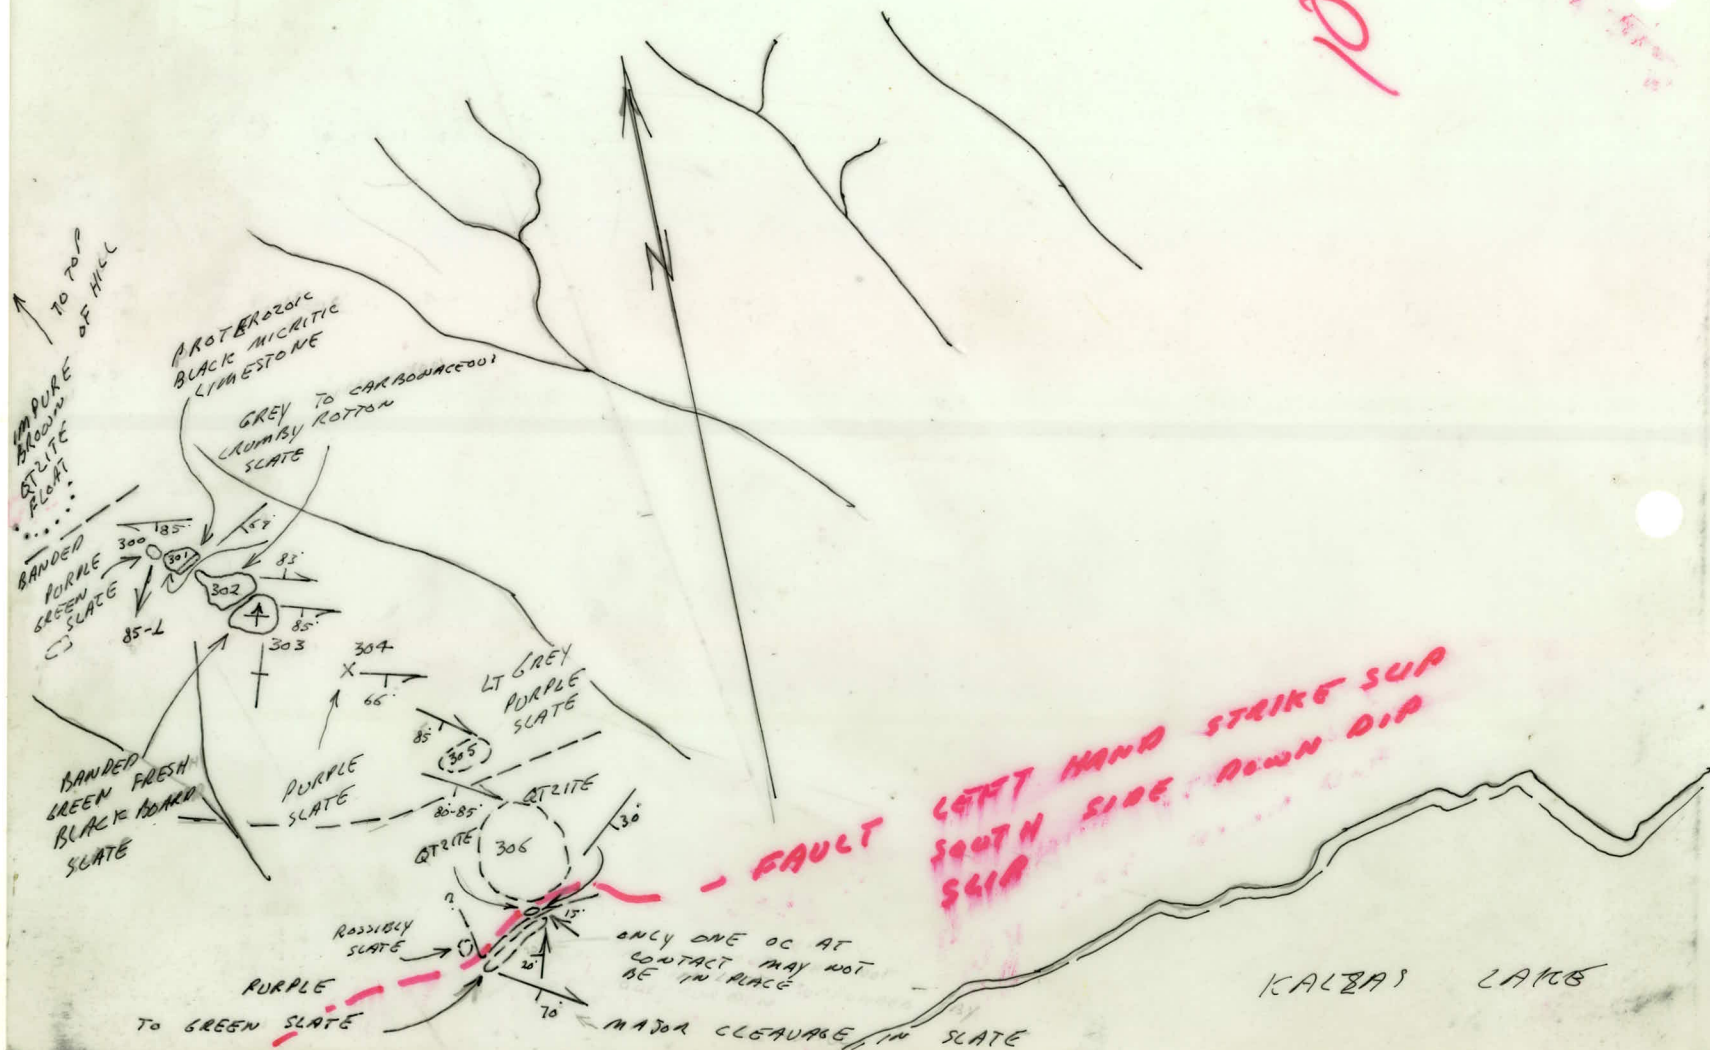 10
TO TOP
OF HILL
IMPURE
BROWN
QTZITE
FLOAT
PROTEROZOIC
BLACK MICRITIC
LIMESTONE
GREY TO CARBONACEOUS
CRUMBY ROTTON
SLATE
N
BANDED
PURPLE
GREEN
SLATE
300
85°
301
302
83°
85°
85-L
303
304
66°
LT GREY
PURPLE
SLATE
85°
305
80-85°
QTZITE
QTZITE
306
30
BANDED
GREEN FRESH
BLACK BOARD
SLATE
PURPLE
SLATE
FAULT
LEFT HAND STRIKE SLIP
SOUTH SIDE DOWN DIP
SLIP
?
POSSIBLY
SLATE
15°
20°
70°
ONLY ONE OC AT
CONTACT MAY NOT
BE IN PLACE
PURPLE
TO GREEN SLATE
MAJOR CLEAVAGE IN SLATE
KALZAS LAKE